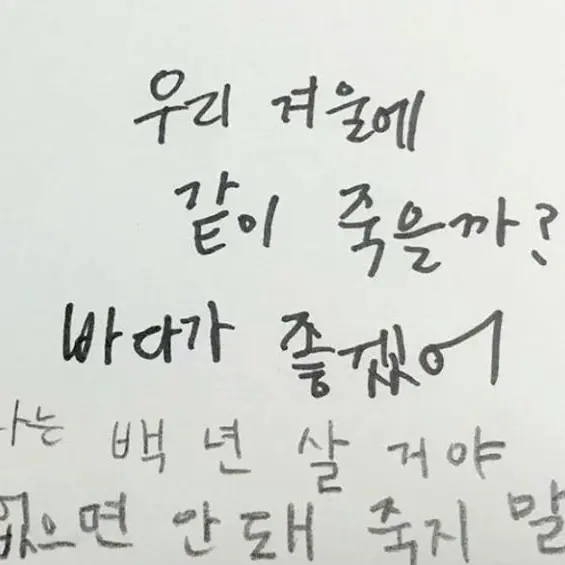 우리 겨울에
같이 죽을까?
바다가 좋겠어
나는 백 년 살 거야
없으면 안돼 죽지 말